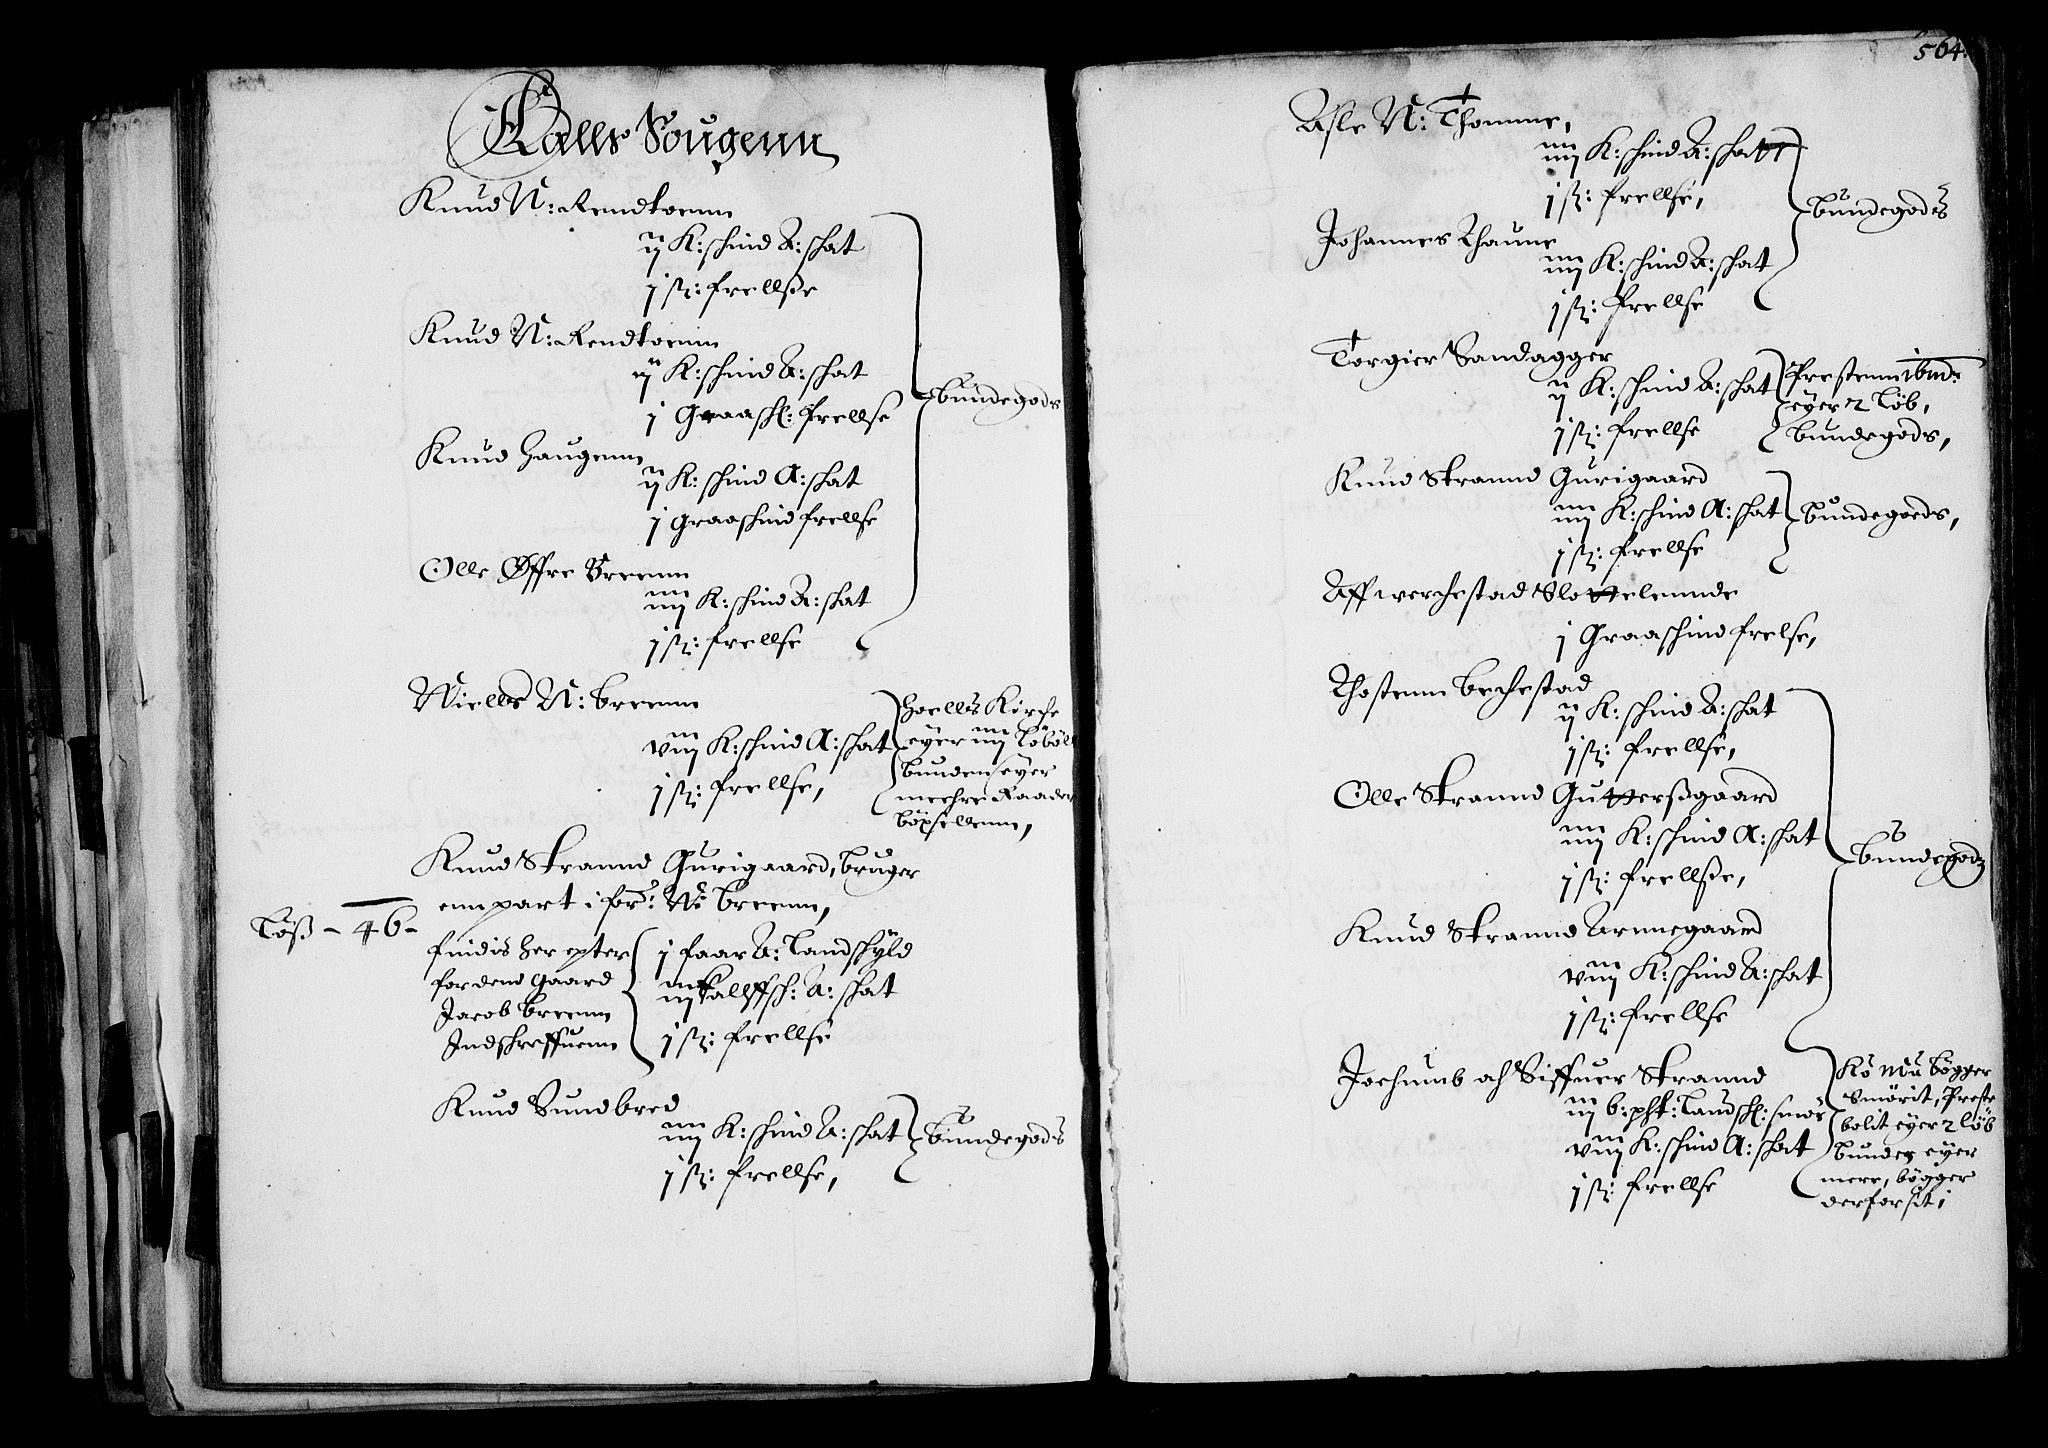 Halls Sougenn
Knud N: Rendtoenn
ij K: schind A: schat
j sk: frellsse
Knud N: Rendtoenn
ij K: schind A: schat
j Graasch: frellse
Knud Haugenn
ij K: schind A: schat
j Graaschind frellse
Olle Øffre Breenn
iiij K: schind A: schat
j sk: frellse
bundegods
Niells N: breenn
viij K: schind A: schat
j sk: frellse,
Hoells Kirche
eyer iiij
bunden eyer
meehre Raader
böxsellenn,
Knud Strannd Gurigaard, bruger
enn part i for: N: breenn,
Löß - 46 -
findis her epter
for dend Gaard
Jacob breenn
Indschreffuenn
j faar A: Landskyld
iij Kalffsch: A: skat
j sk: frellse
Knud Sundbred
iiij K: schind A: schat
j sk: frellse,
bundegods
564.
Asle N: Thomme,
iiij K: schind A: schatt
j sk: frellse,
Johannes Thaune
iiij K: schind A: schat
j sk: frellse
bundegods
Torgier Sandagger
ij K: schind A: schat
j sk: frellse
Prestenn ibid:
eyer 2 Löb,
bundegods,
Knud Strannd Gurigaard
iiij K: schind A: schat
j sk: frellse
bundegoeds,
Aff werchestad Slottelennde
j Graaschind frelse,
Thostenn bechestad
ij K: schind A: schat
j sk: frellse,
Olle Strannd Gutterssgaard
iiij K: schind A: schat
j sk: frellsse,
Knud Strannd Arnnegaard
viij K: schind A: schat
j sk: frellse
bundegodz
Jochumb och Siffuer Strannd
iij b: pht: Landsk: smør
viij K: schind A: schat
j sk: frellse
bögger
Vnörit, Preste
bolit eyer 2 löb
bunder eyer
mere, bögger
derfor sit i